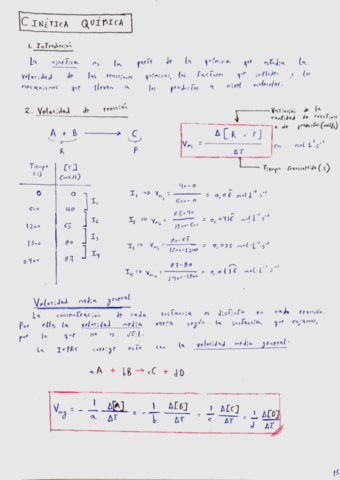 CINÉTICA QUÍMICA
1. Introducción
La cinética es la parte de la química que estudia la
velocidad de las reacciones químicas, los factores que influyen y los
mecanismos que llevan a los productos a nivel molecular.
2. Velocidad de reacción
Variación de
la cantidad de reactivos
o de productos (mol/L)
A + B → C
R P
Vm = Δ[R o P] / ΔT en mol·L⁻¹s⁻¹
Tiempo transcurrido (s)
Tiempo (s) [C] (mol/L)
0 0
600 40
1200 65
1800 80
2400 87
I₁
I₂
I₃
I₄
I₁ → Vm₁ = 40-0 / 600-0 = mol·L⁻¹s⁻¹
I₂ → Vm₂ = 65-40 / = mol·L⁻¹s⁻¹
I₃ → Vm₃ = 80-65 / 1800-1200 = 0,025 mol·L⁻¹s⁻¹
I₄ → Vm₄ = 87-80 / 2400-1800 = mol·L⁻¹s⁻¹
Velocidad media general
La concentración de cada sustancia es distinta en cada reacción.
Por ello, la velocidad media varía según la sustancia que
por lo que no es útil.
La IUPAC corrige esto con la velocidad media general:
aA + bB → cC + dD
Vmg = - 1/a Δ[A]/ΔT = - 1/b Δ[B]/ΔT = 1/c Δ[C]/ΔT = 1/d Δ[D]/ΔT